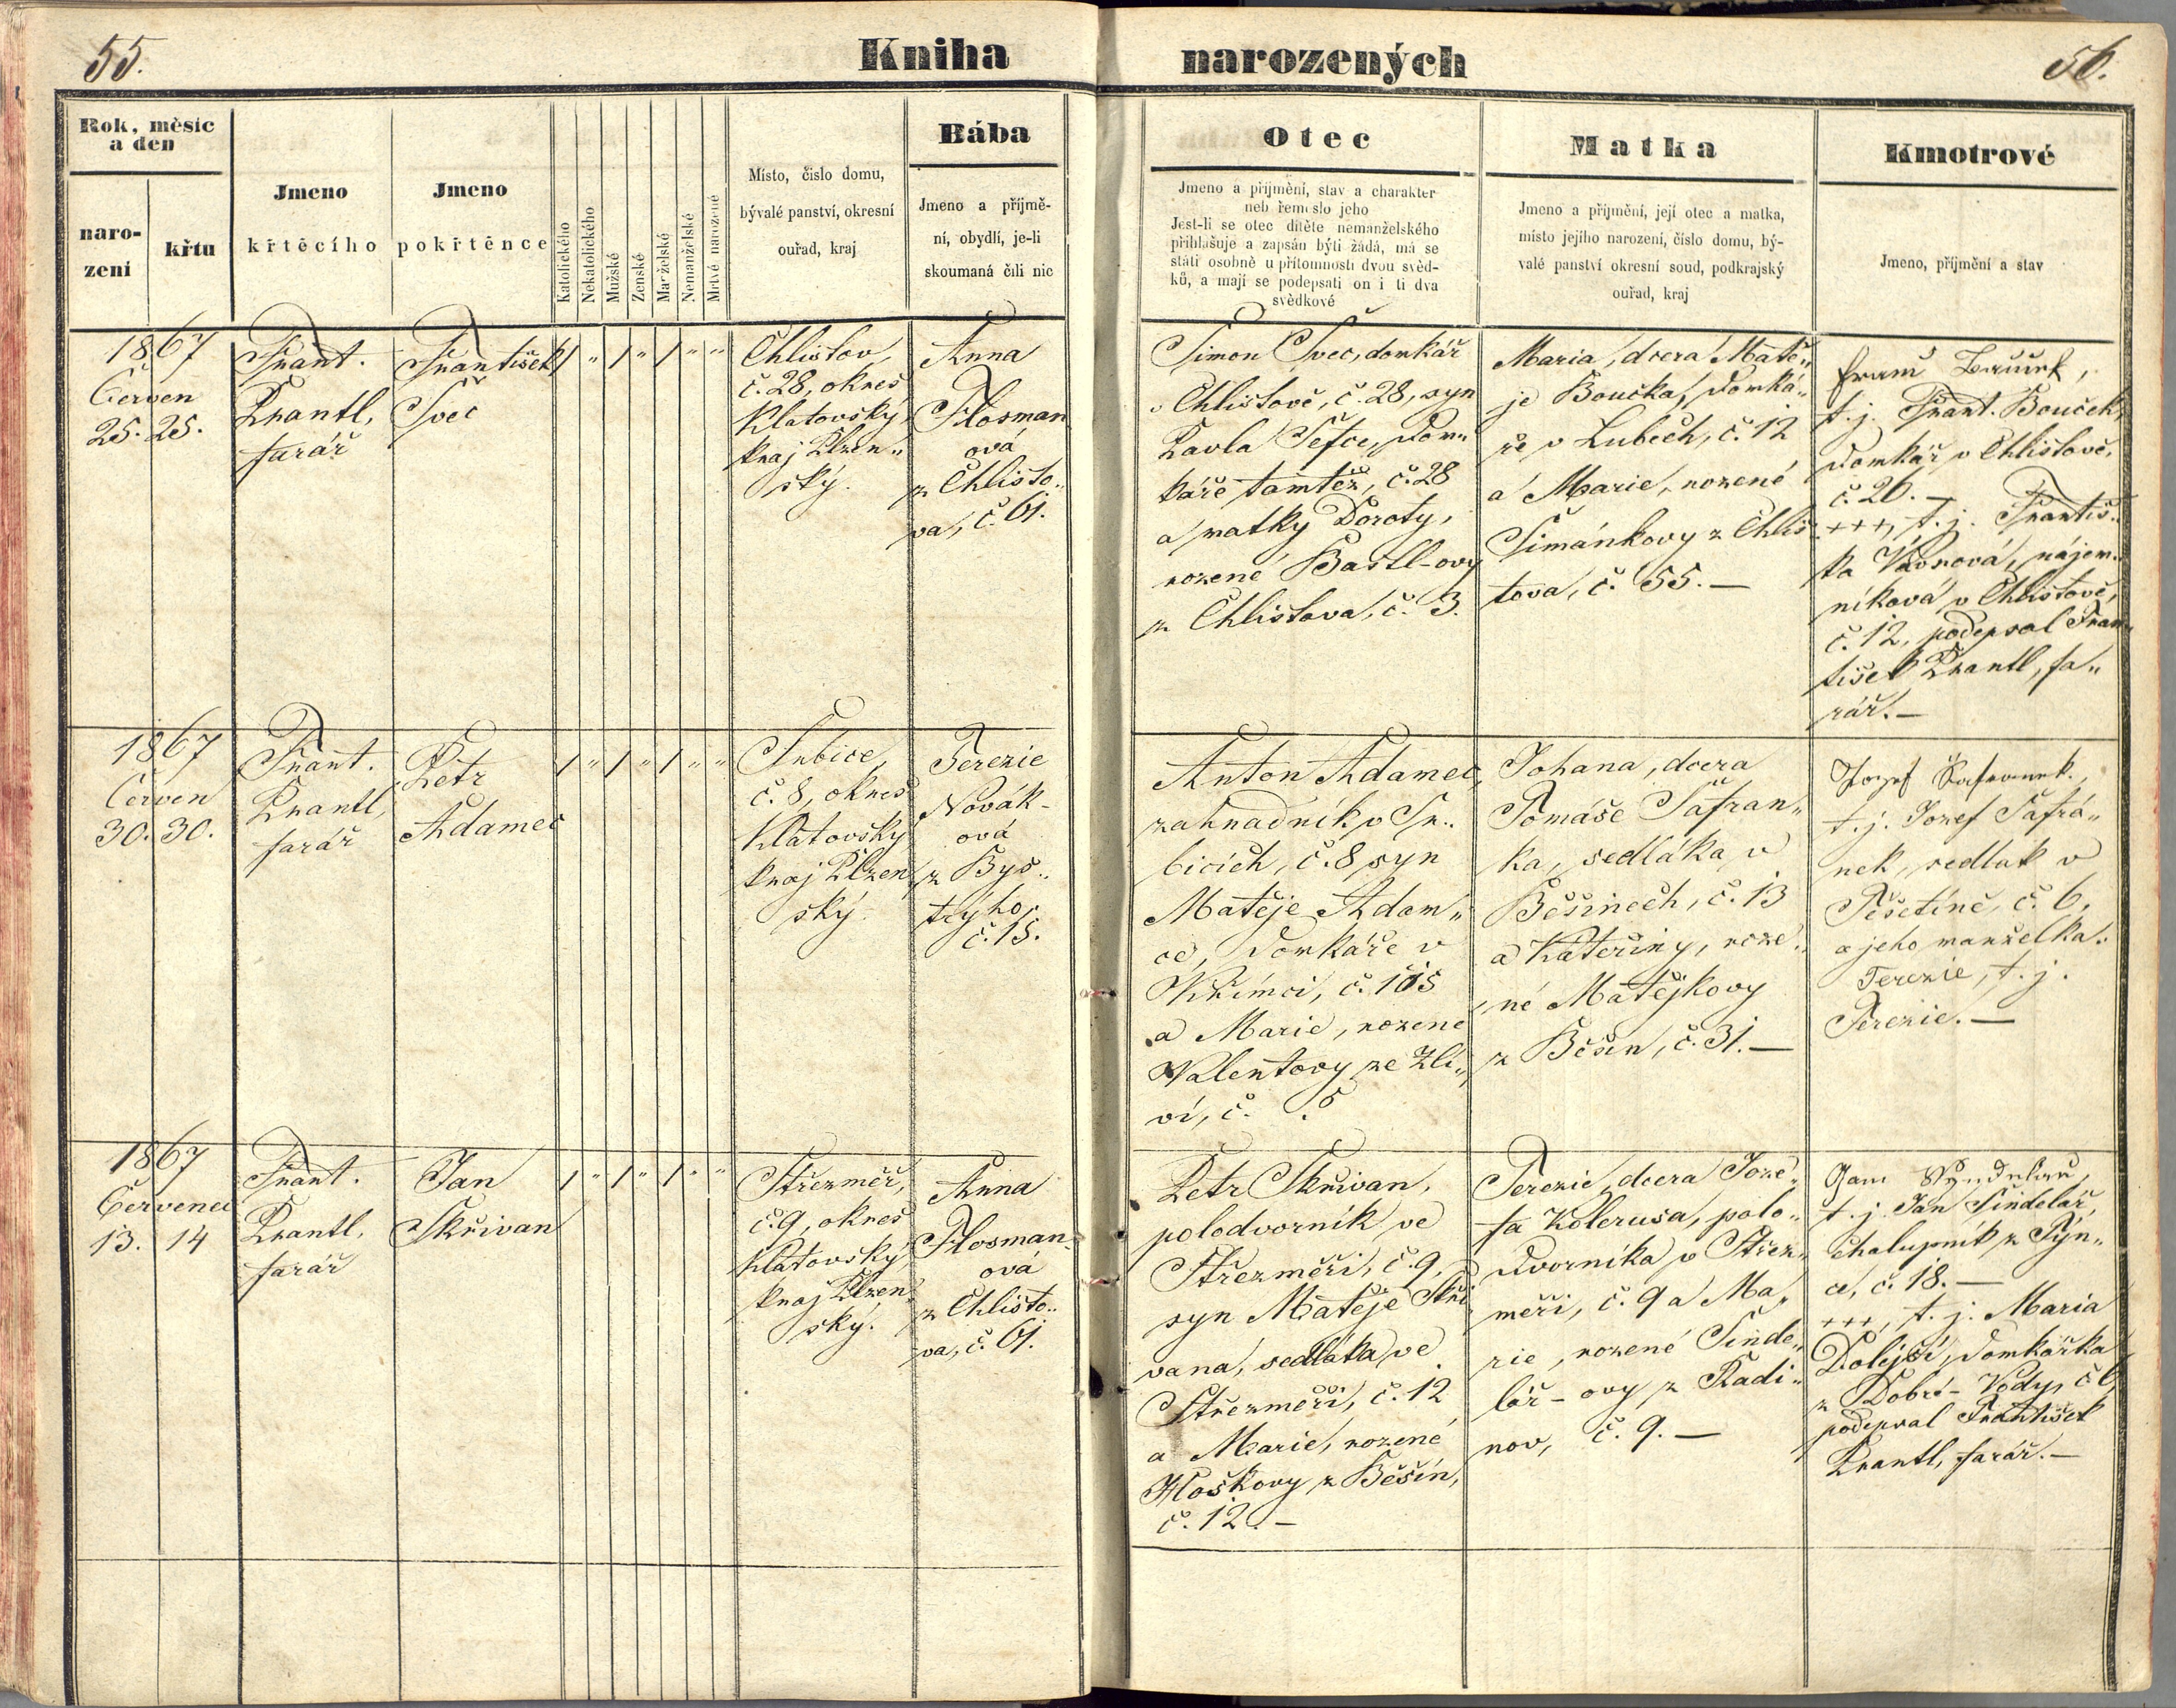 55.
Kniha
narozených
56.
Rok, měsíc
a den
naro-
zení
křtu
Jmeno
křtěcího
Jmeno
pokřtěnce
Katolického
Nekatolického
Mužské
Zenské
Manželské
Nemanželské
Mrtvé narozené
Místo, číslo domu,
bývalé panství, okresní
ouřad, kraj
Bába
Jmeno a příjmě-
ní, obydlí, je-li
skoumaná čili nic
Otec
Jmeno a příjmění, stav a charakter
neb řemeslo jeho
Jest-li se otec dítěte nemanželského
přihlašuje a zapsán býti žádá, má se
státi osobně u přítomnosti dvou svěd-
ků, a mají se podepsati on i ti dva
svědkové
Matka
Jmeno a příjmění, její otec a matka,
místo jejího narození, číslo domu, bý-
valé panství okresní soud, podkrajský
ouřad, kraj
Kmotrové
Jmeno, příjmění a stav
1867
Červen
25. 25.
Frant.
Krantl,
farář
František
Švec
/ " / " / " "
Chlistov,
č. 28, okres
Klatovský,
kraj Plzen„
ský.
Anna
Flosman
ová
z Chlisto„
va, č. 61.
Šimon Švec, domkář
v Chlistově, č. 28, syn
Pavla Šefce, dom„
káře tamtéž, č. 28
a matky Doroty,
rozené Bastl-ovy
z Chlistova, č. 3.
Maria, dcera Matě„
je Boučka, domká„
ře v Lubech, č. 12
a Marie, rozené
Šimánkovy z Chlis
tova, č. 55. —
t. j. Frant. Bouček,
domkář v Chlistově,
č. 26. —
+++, t. j. Františ„
ka Vávrová, nájem„
níková v Chlistově,
č. 12, podepsal Fran„
tišek Krantl, fa„
rář. —
1867
Červen
30. 30.
Frant.
Krantl,
farář
Petr
Adamec
/ " / " / " "
Srbice,
č. 8, okres
Klatovský
kraj Plzen
ský.
Terezie
Novák-
ová
z Bys„
trýho,
č. 15.
Anton Adamec,
zahradník v Sr„
bicích, č. 8 syn
Matěje Adam„
ce, domkáře v
Křimci, č. 105
a Marie, rozené
Valentovy ze Zli„
ví, č. 5
Johana, dcera
Tomáše Šafran„
ka, sedláka v
Běšinech, č. 13
a Kateřiny, roze„
né Matějkovy
z Běšin, č. 31. —
Jozef Šafranek,
t. j. Jozef Šafrá„
nek, sedlák v
Těšetíně, č. 6,
a jeho manželka
Terezie, t. j.
Terezie. —
1867
Červenec
13. 14
Frant.
Krantl,
farář
Jan
Skřivan
/ " / " / " "
Střezměř,
č. 9, okres
Klatovský,
kraj Plzen
ský.
Anna
Flosman-
ová
z Chlisto„
va, č. 61.
Petr Skřivan,
polodvorník ve
Střezměři, č. 9,
syn Matěje Skři
vana, sedláka ve
Střezměři, č. 12
a Marie, rozené
Hoškovy z Běšin,
č. 12. —
Terezie, dcera Joze„
fa Kolerusa, polo„
dvorníka v Střez„
měři, č. 9 a Ma„
rie, rozené Šinde„
lář-ovy z Radi„
nov, č. 9. —
t. j. Jan Šindelář,
chalupník z Týn„
ce, č. 18. —
+++, t. j. Maria
Dolejší, domkářka
z Dobré-Vody, č. 6
podepsal František
Krantl, farář. —